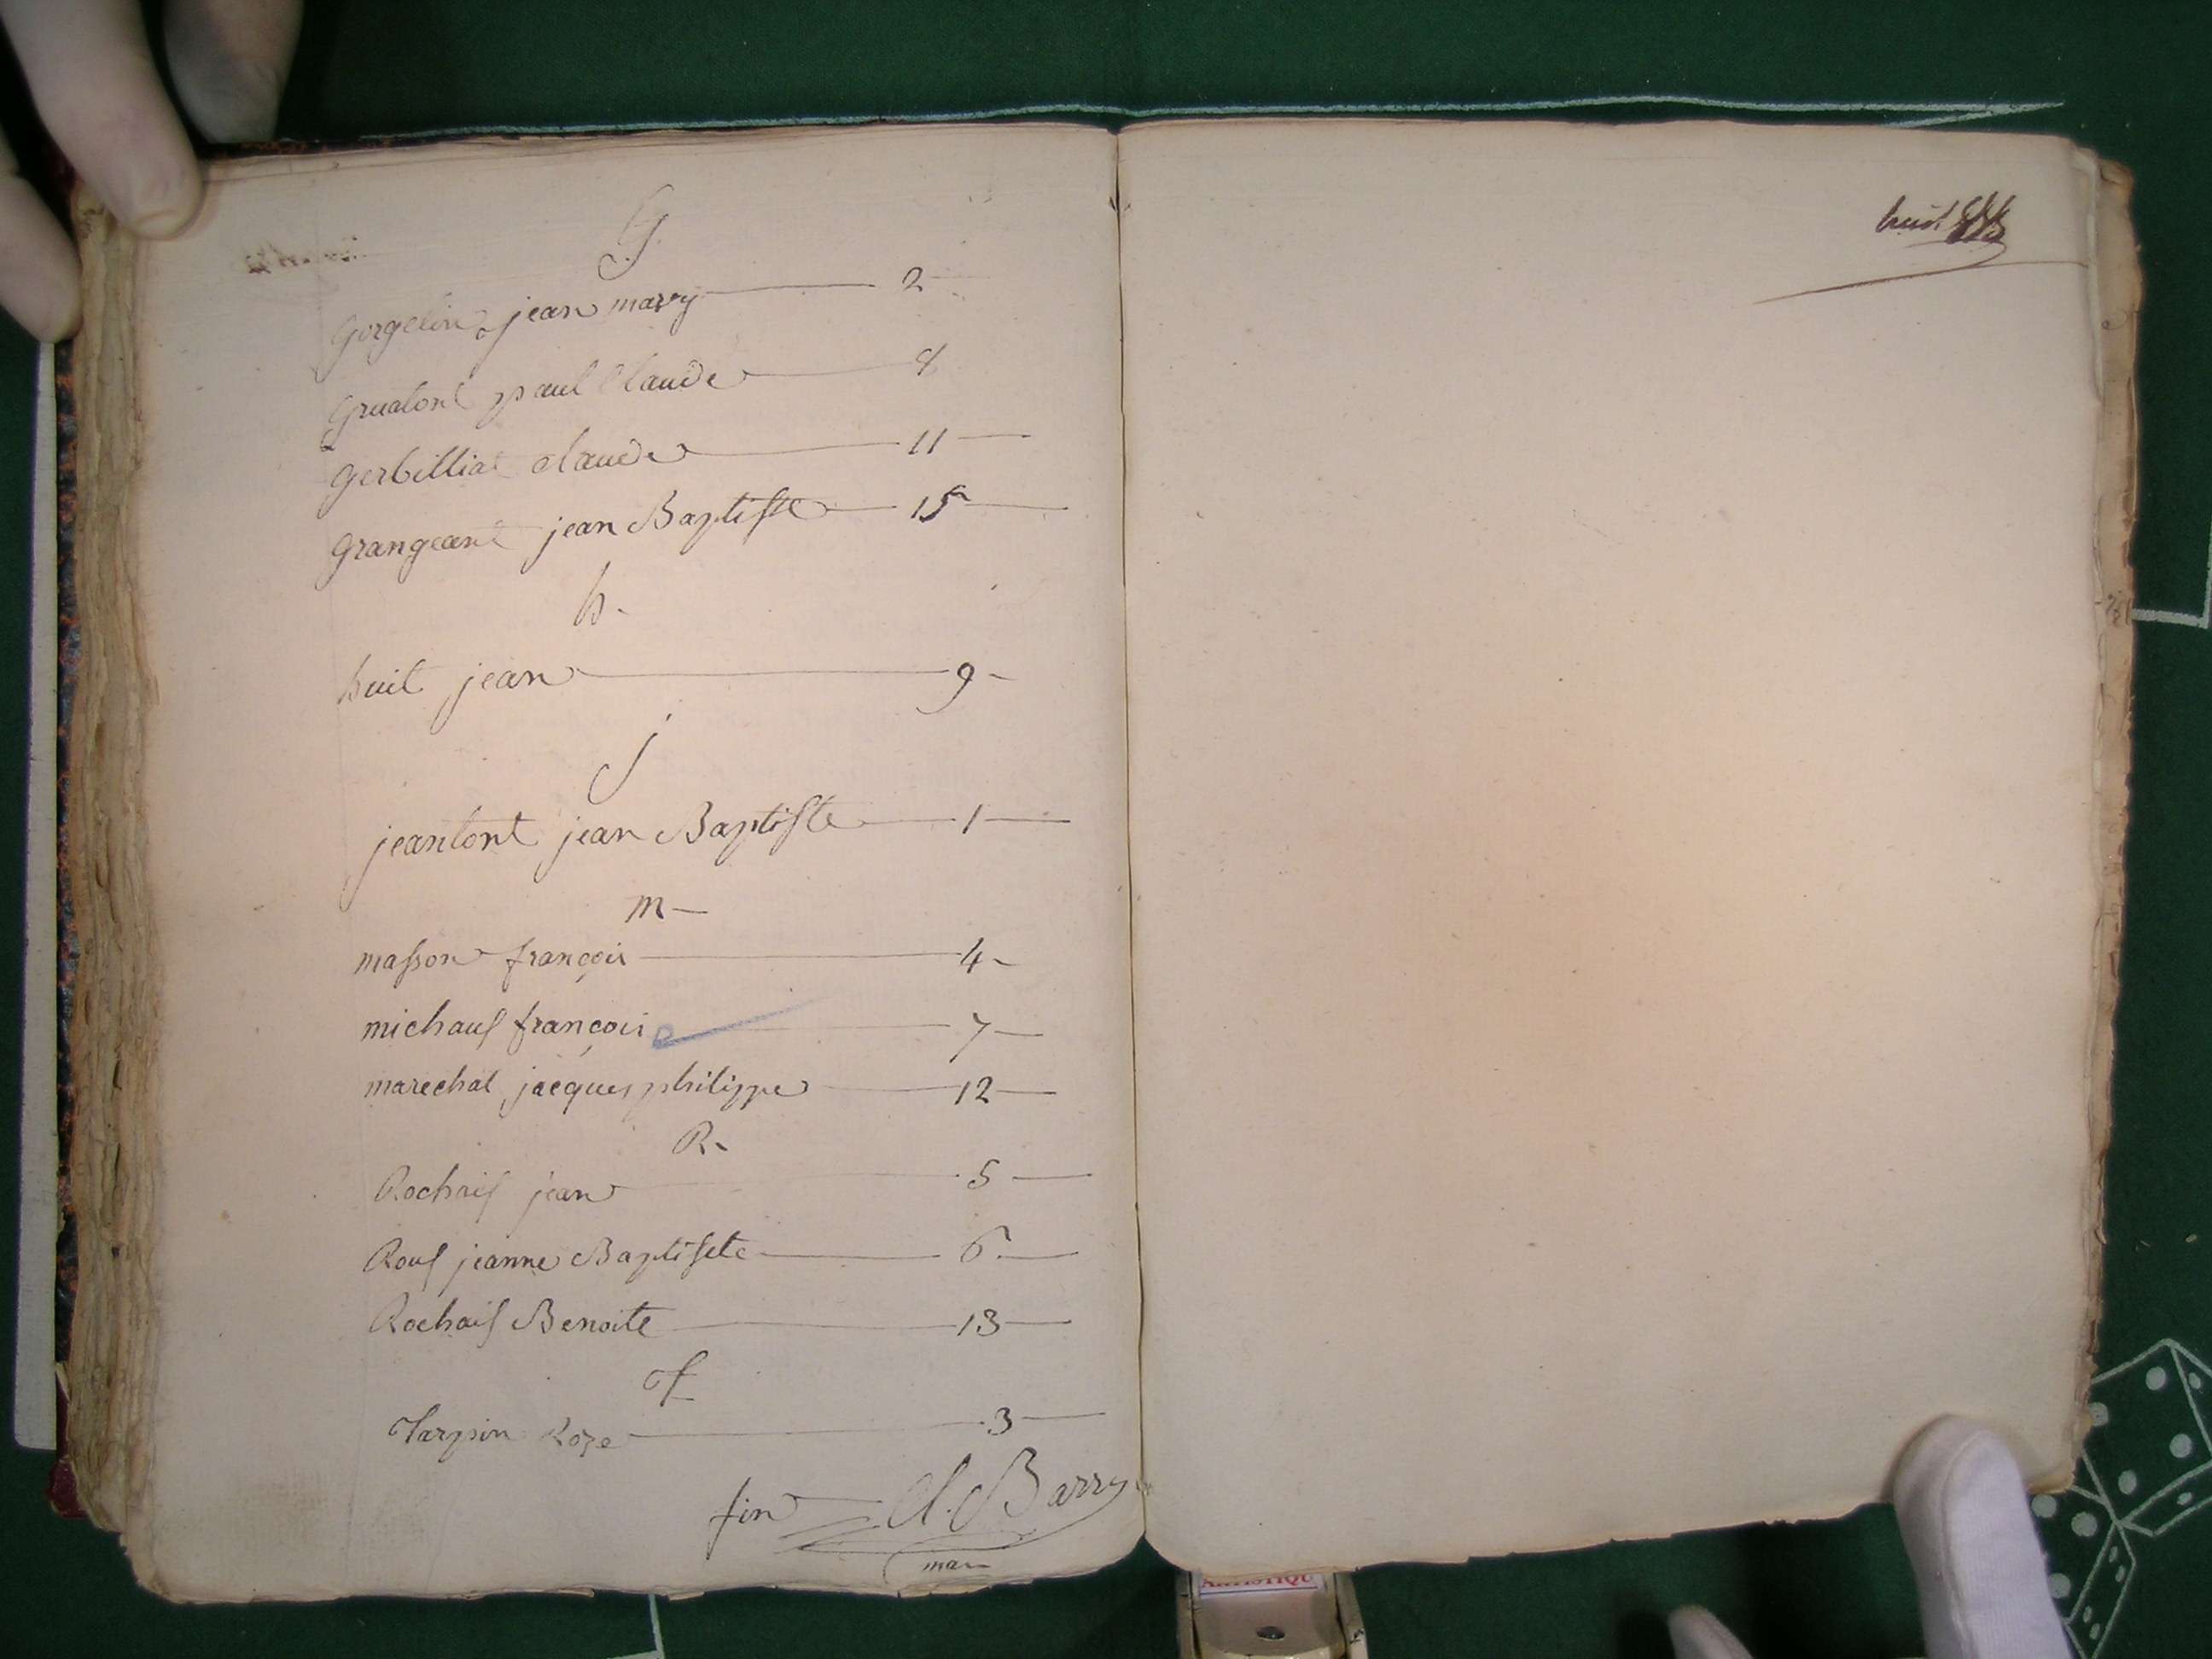 G.
Gorgelin jean mary 2
Gruatont paul Claude 8
Gerbilliat claude 11
Grangeant jean Baptiste 15
h.
huit jean 9
j
jeantont jean Baptiste 1
m
masson françois 4
michaus françois 7
marechal jacques philippe 12
R.
Rochais jean 5
Rous jeanne Baptiste 6
Rochais Benoite 13
T
Tarpin Roze 3
fin Cl. Barry
mar
huit
ARTISTIQU